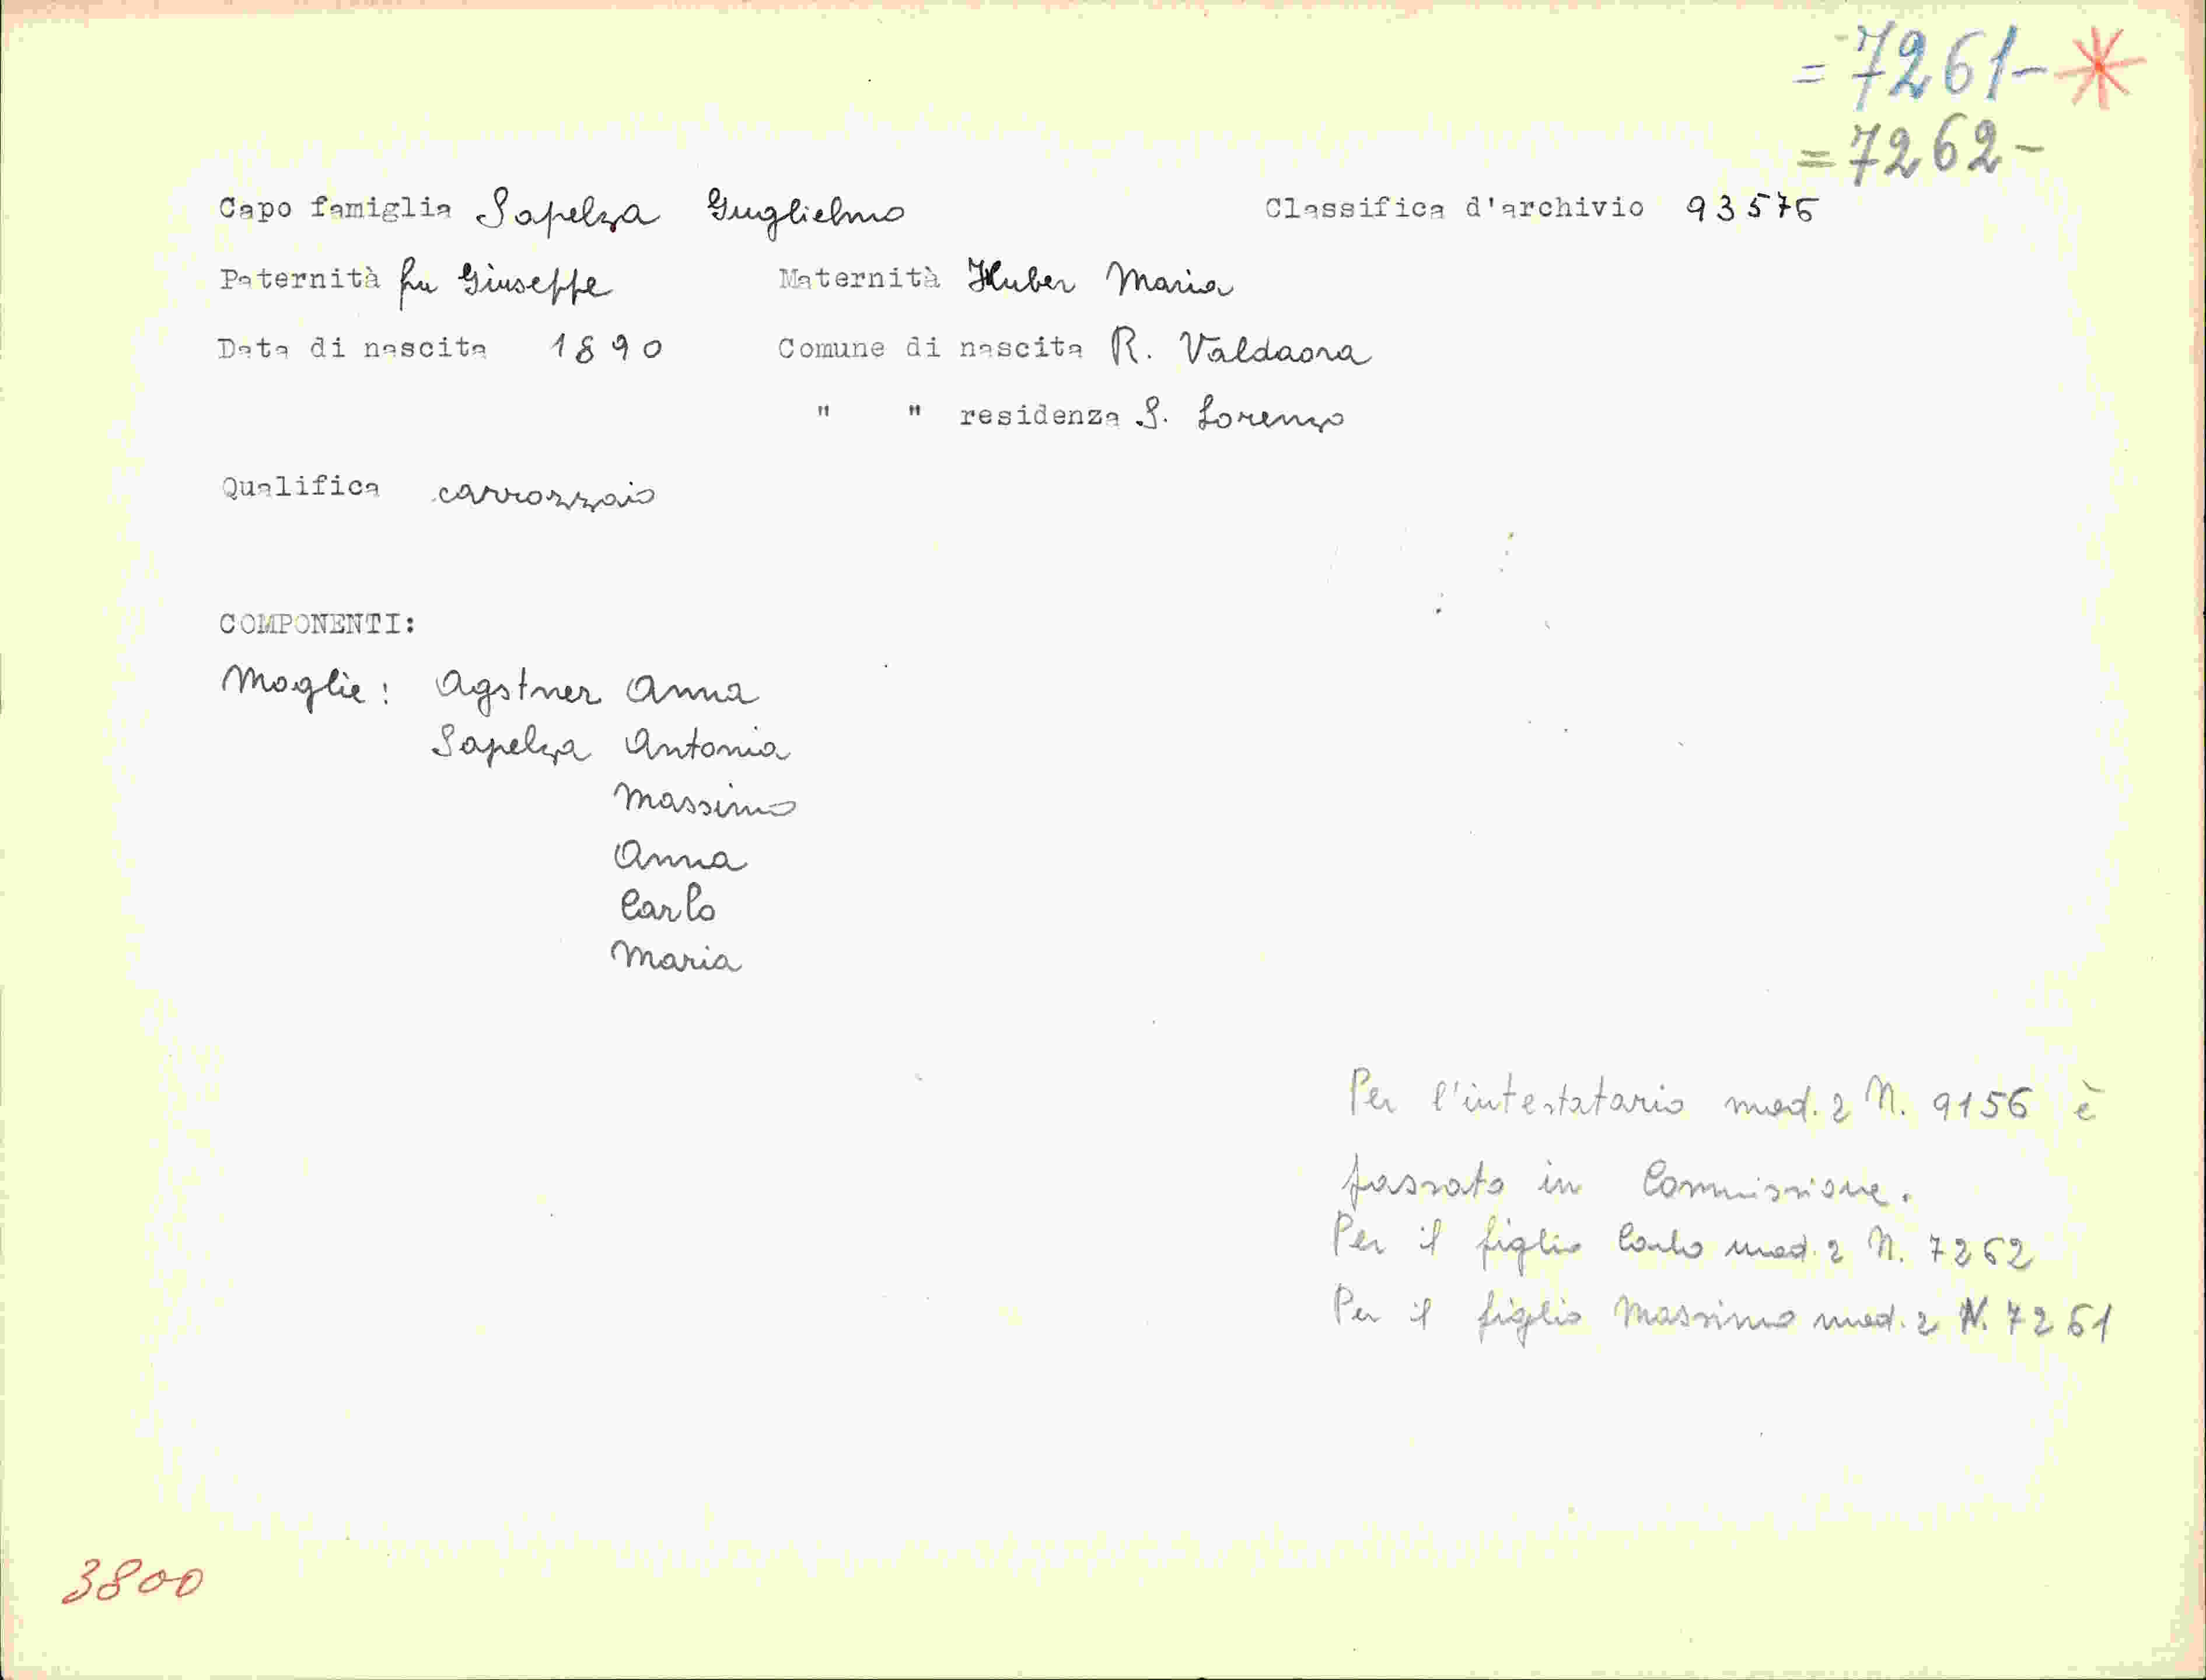 = 7261 - *
= 7262 -
Capo famiglia Sapelza Guglielmo Classifica d'archivio 93576
Paternità fu Giuseppe Maternità Huber Maria
Data di nascita 1890 Comune di nascita R. Valdaora
" " residenza S. Lorenzo
Qualifica carrozzaio
COMPONENTI:
Moglie: Agstner Anna
Sapelza Antonia
Massimo
Anna
Carlo
Maria
Per l'intestatario mod. 2 N. 9156 è
passato in Commissione.
Per il figlio Carlo mod. 2 N. 7262
Per il figlio Massimo mod. 2 N. 7261
3800